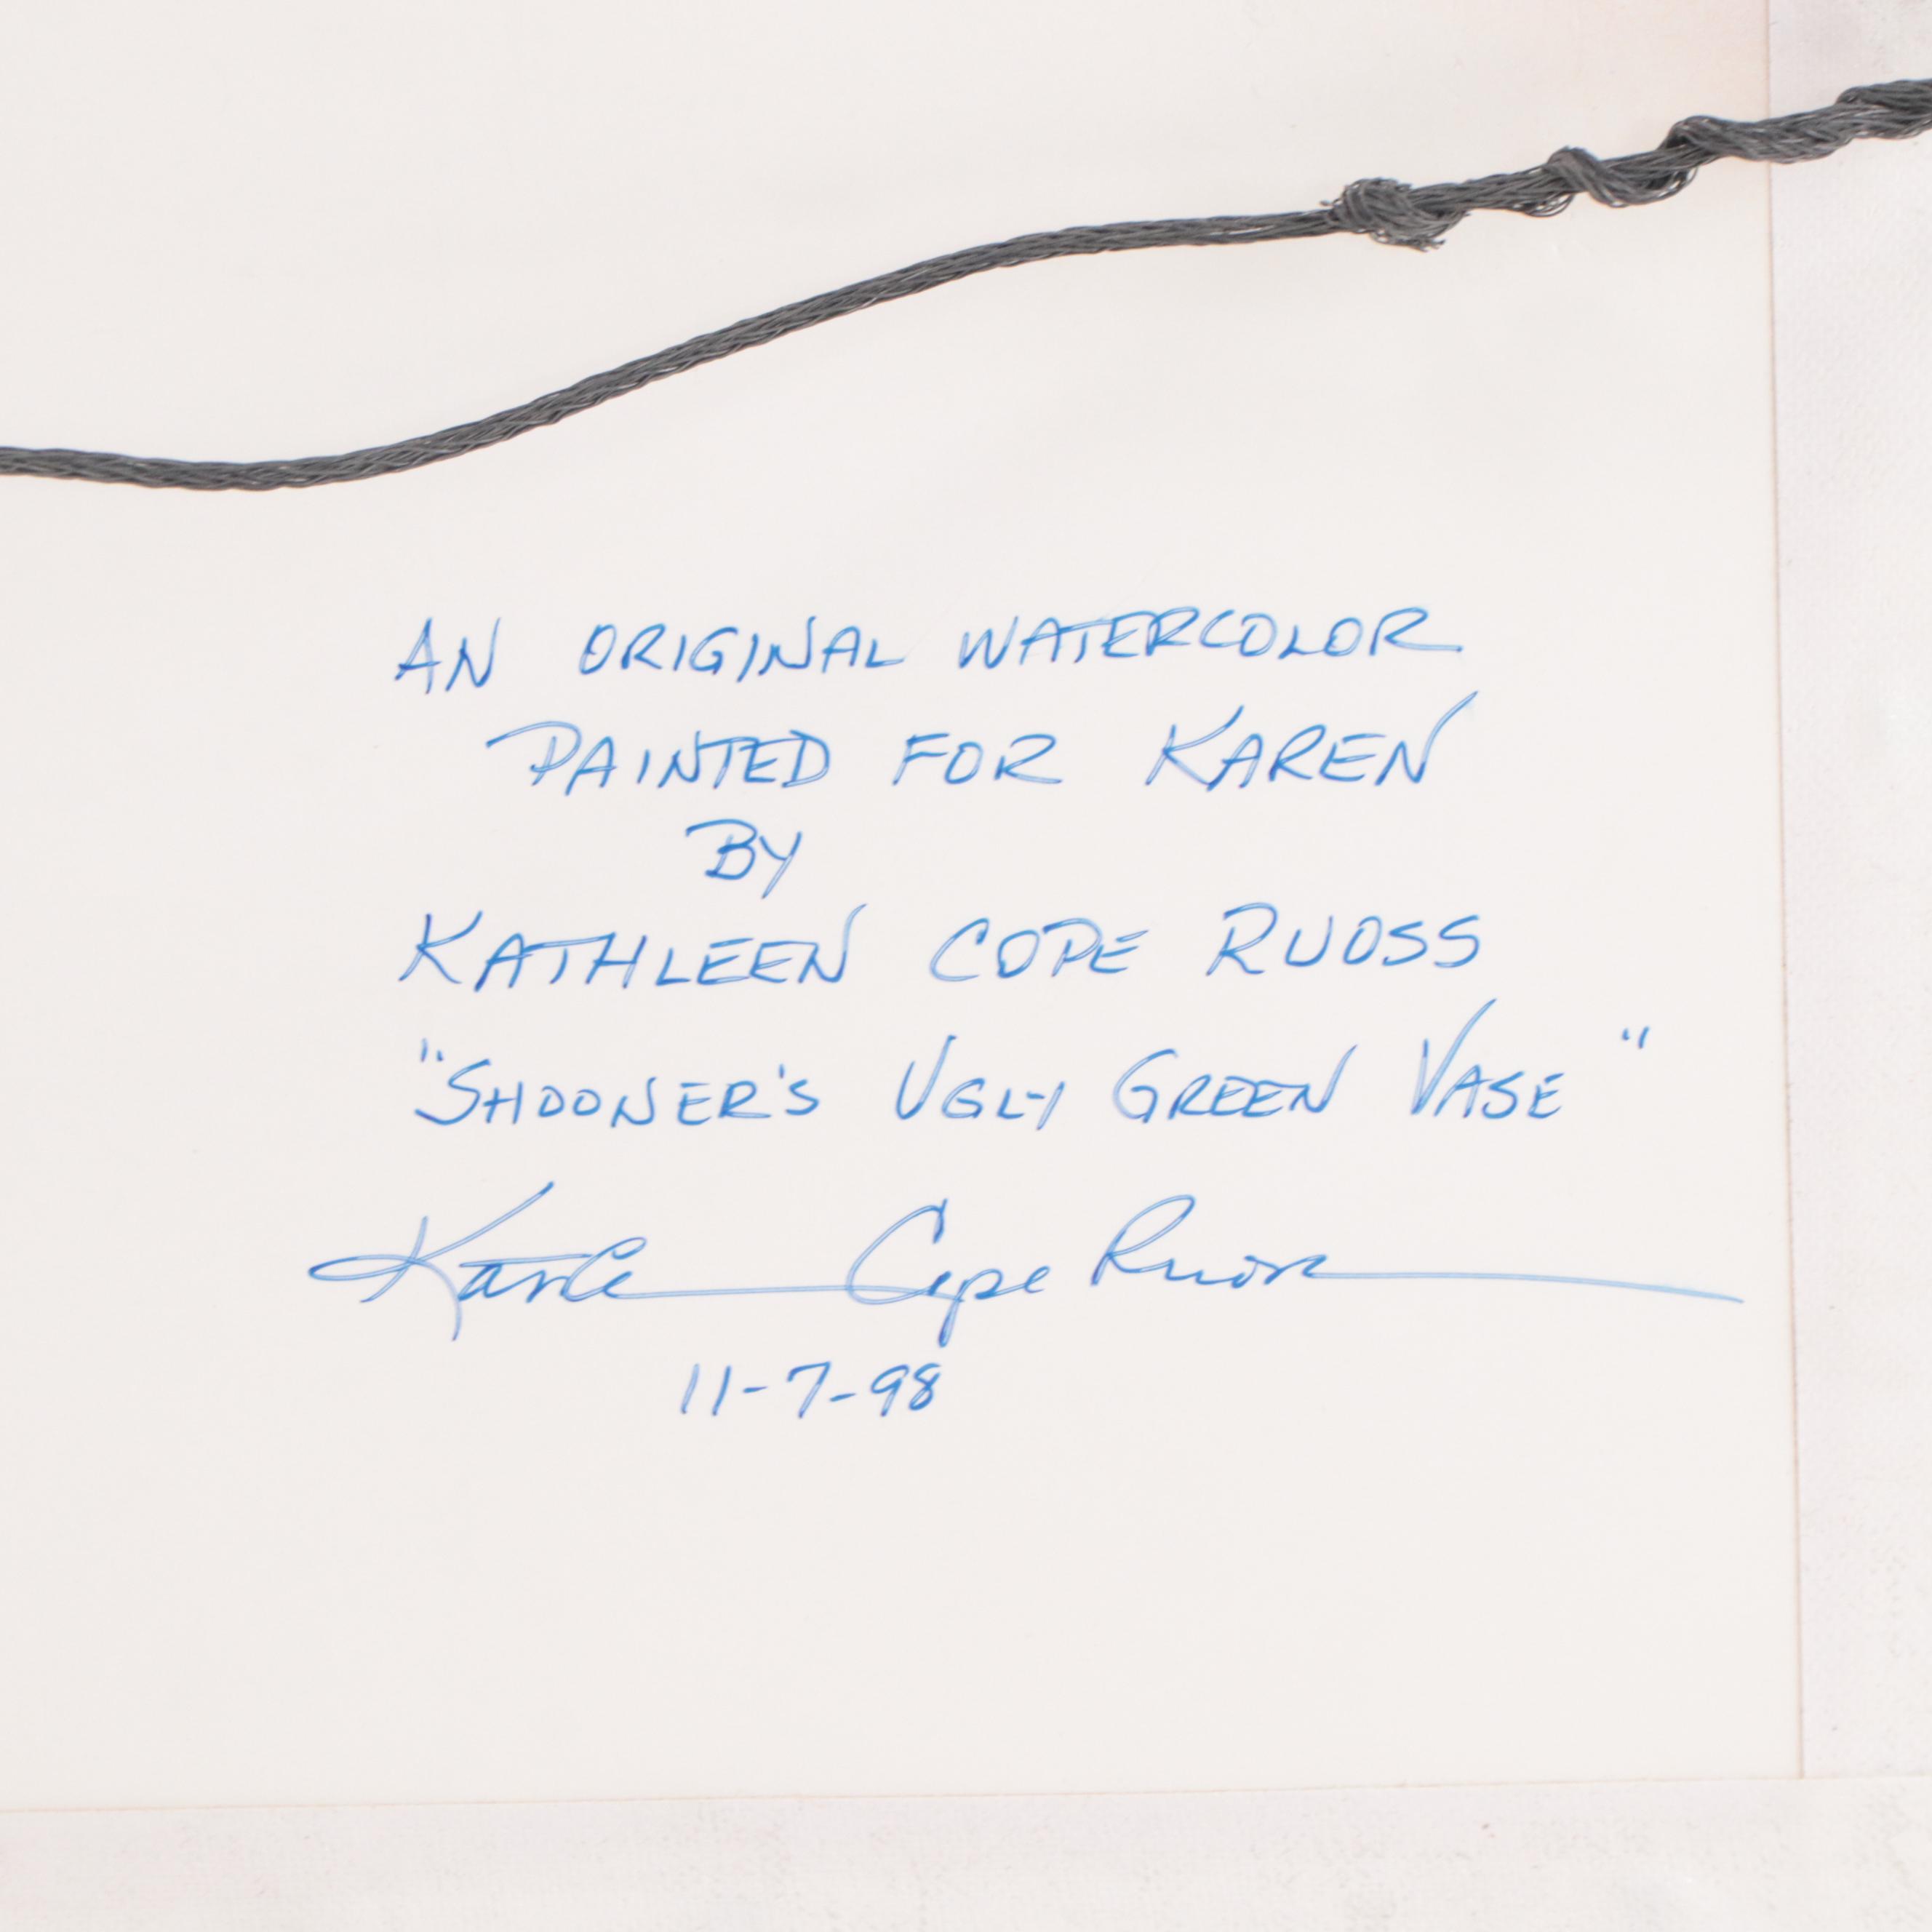 AN ORIGINAL WATERCOLOR
PAINTED FOR KAREN
BY
KATHLEEN COPE RUOSS
"SHOONER'S UGLY GREEN VASE"
Cope Ruoss
11-7-98